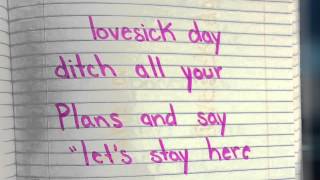 lovesick day
ditch all your
Plans and say
"let's stay here